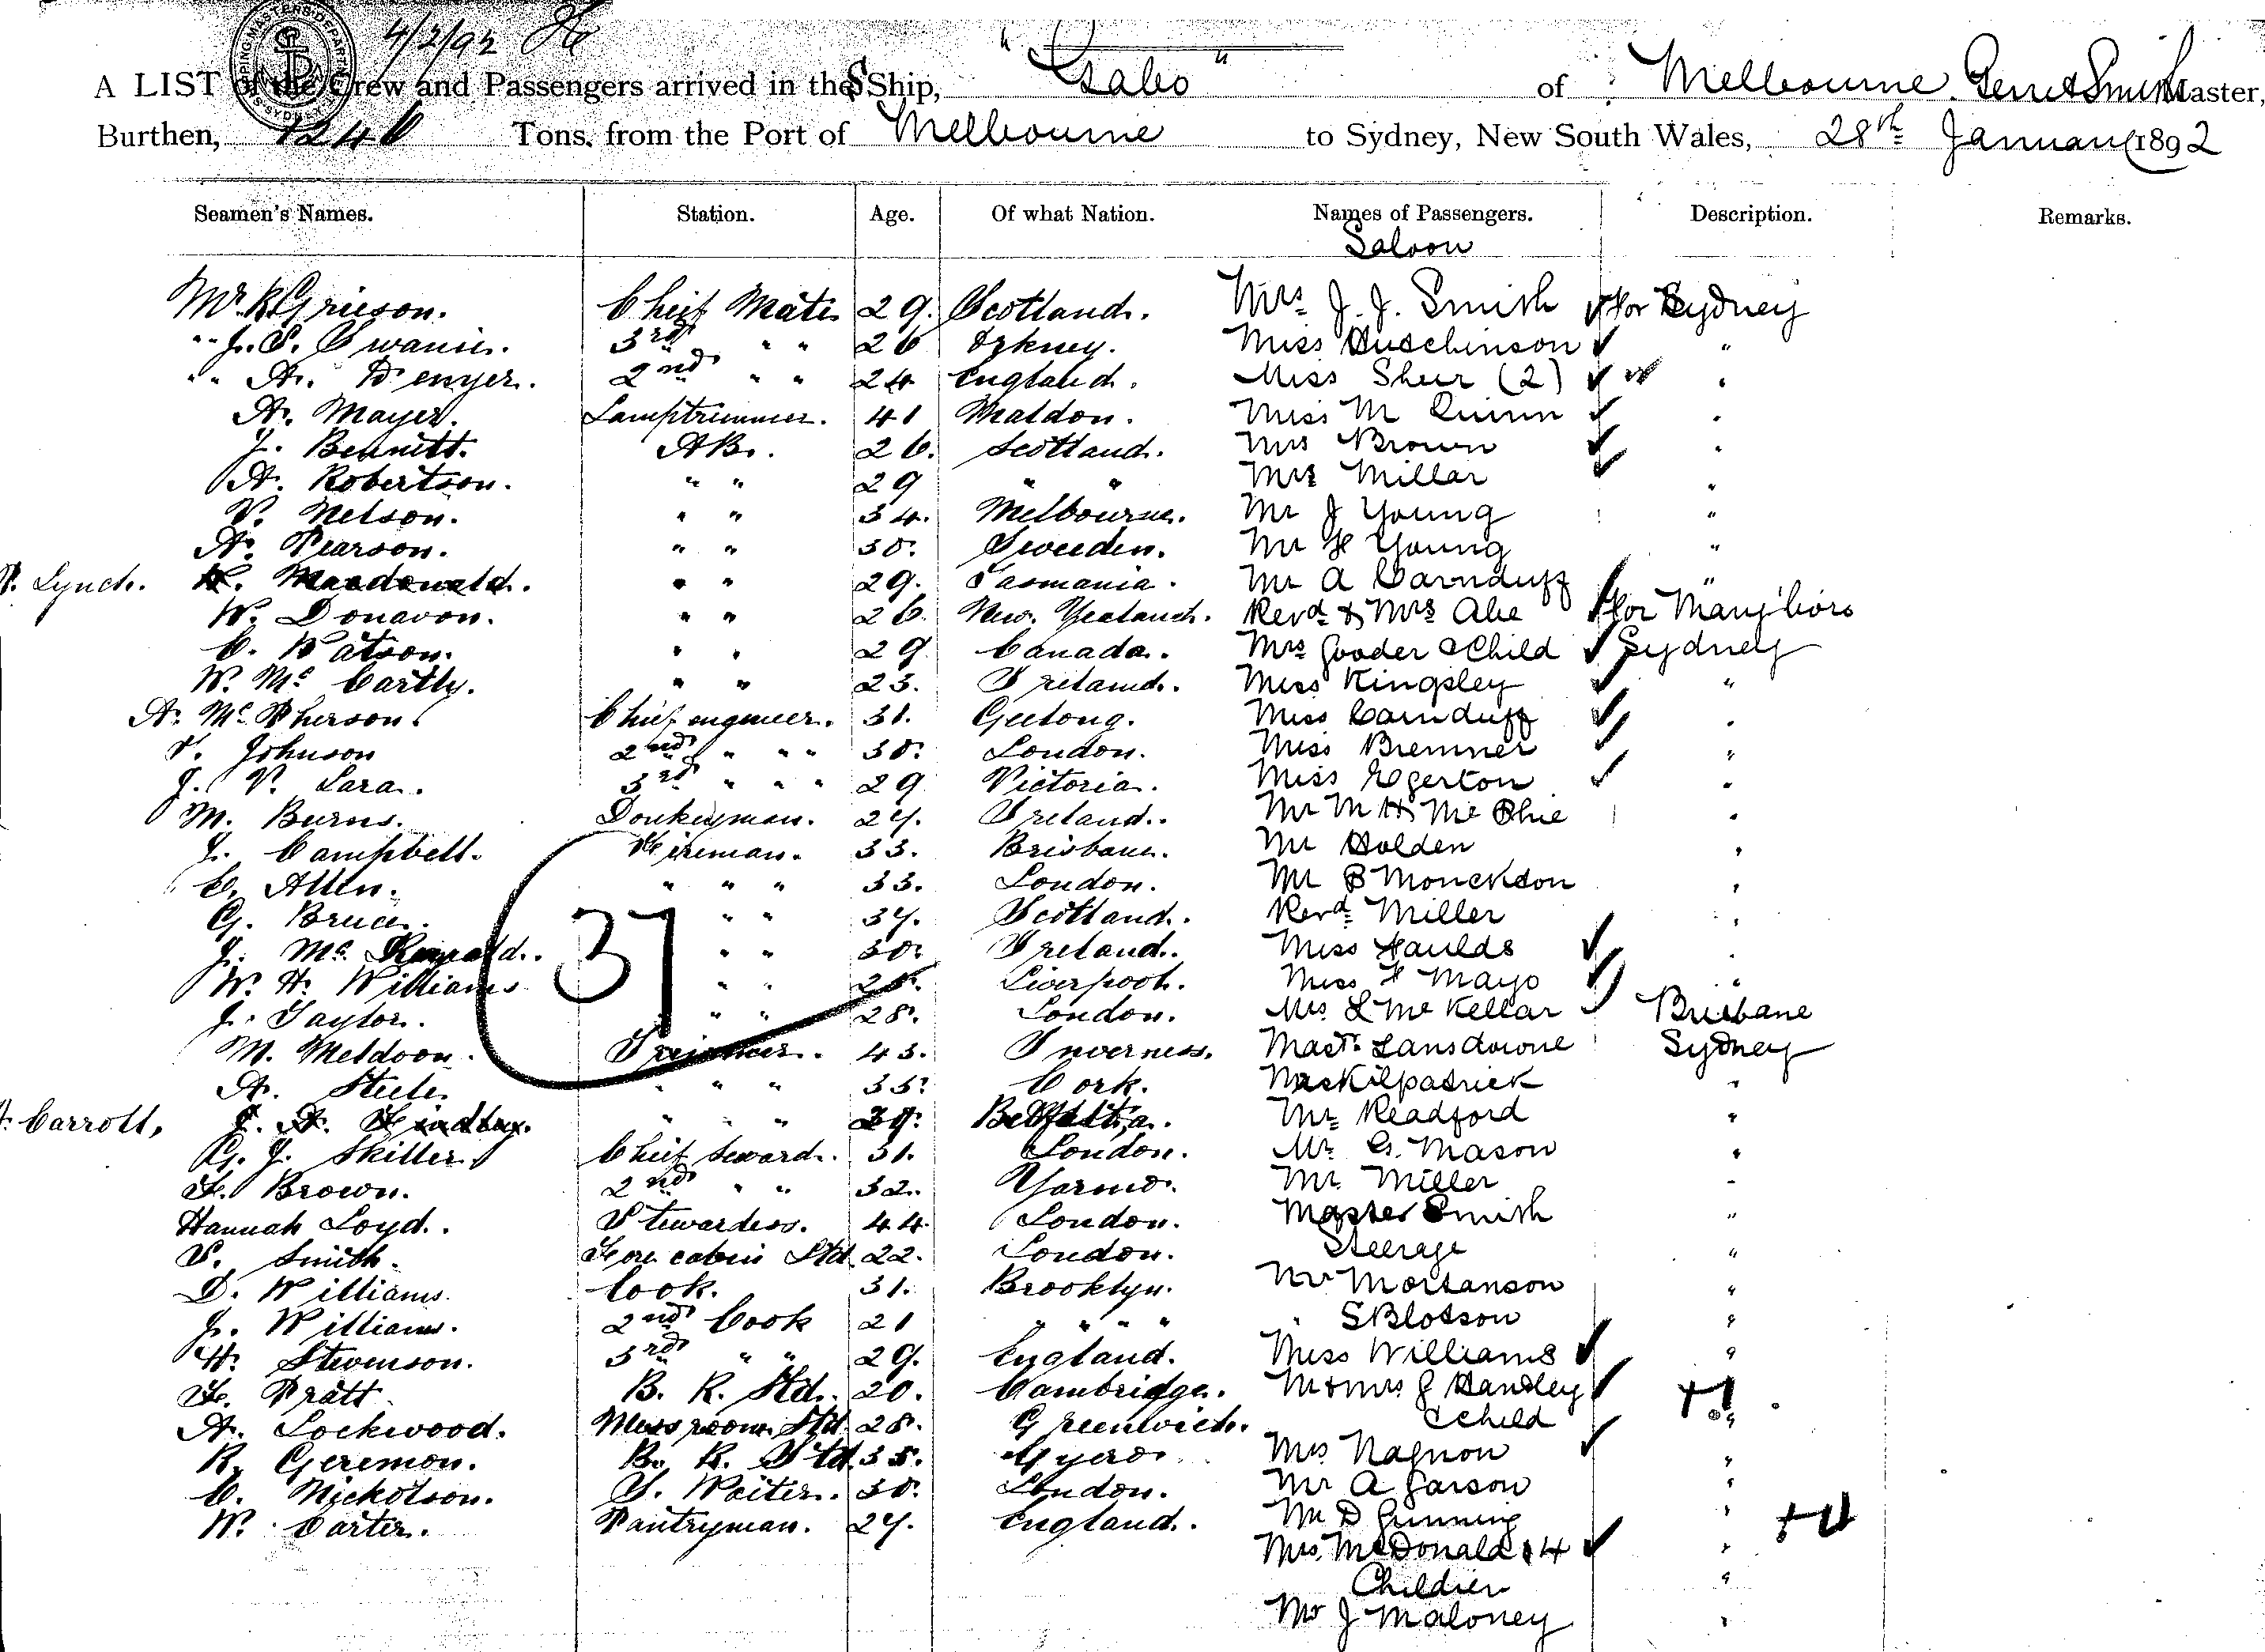 4/2/92
A LIST of the Crew and Passengers arrived in the S Ship, "Gabo" of Melbourne, Gerret Smith Master,
Burthen, 1246 Tons, from the Port of Melbourne to Sydney, New South Wales, 28th January 1892
Seamen's Names. Station. Age. Of what Nation. Names of Passengers. Description. Remarks.
Saloon
Mr R Grieson. Chief Mate 29. Scotland. Mrs J. J. Smith for Sydney
" J. S. 3rd " " 26 Orkney. Miss Hutchinson "
" A. Denyer. 2nd " " 24 England. Miss Sheir (2) "
A. Mayer. Lamptrimmer. 41 Maldon. Miss M Quinn "
J. Bennitt. AB. 26. Scotland. Mrs Brown "
A. Robertson. " " 29 " " Mrs Millar "
V. Nelson. " " 34. Melbourne. Mr J Young "
A. Pearson. " " 30. Sweeden. Mr H Young "
Lynch. Macdonald. " " 29. Tasmania. Mr A Carnduff "
W. Donavon. " " 26. New. Zealand. Revd & Mrs Abe for Mary'boro
C. Watson. " " 29 Canada. Mrs Gooder & Child Sydney
W. Mc Cartly. " " 23. Ireland. Miss Kingsley "
A. Mc Pherson. Chief engineer. 31. Geelong. Miss Carnduff "
Johnson 2nd " " 30. London. Miss Bremner "
J. V. Lara. 3rd " " " 29 Victoria. Miss Egerton "
M. Burns. Donkeyman. 27. Ireland. Mr M H Mc Phie "
J. Campbell. Fireman. 33. Brisbane. Mr Holden "
C. Allen. " " " 33. London. Mr B Monckton "
G. Bruce. " " 37. Scotland. Revd Miller "
J. Mc Donald. " " 30. Ireland. Miss Faulds "
W. H. Williams " " Liverpool. Miss F Mayo "
J. Taylor. " " 28. London. Mrs L Mc Kellar Brisbane
37
M. Meldoon. Trimmer. 43. Inverness. Mastr Lansdowne Sydney
A. Steele. " " " 33. Cork. Kilpatrick "
Carroll, J. A. Findlay. " " " Mr Readford "
G. J. Skiller Chief Steward. 31. London. Mr G. Mason "
F. Brown. 2nd " " 32. Yarmo. Mr Miller "
Hannah Loyd. Stewardess. 44. London. Master Smith "
Steerage
S. Smith. Fore cabin Std 22. London. "
D. Williams. Cook. 31. Brooklyn. Mr Mortanson "
J. Williams. 2nd Cook 21 " " " " " S Blotson "
H. Stevenson. 3rd " " 29. England. Miss Williams "
F. Pratt. B. R. Std. 20. Cambridge. Mr & Mrs J Handley
A. Lockwood. Messroom Std. 28. Greenwich. & Child "
R. Geremon. B. R. Std. 35. Mrs Nagnon "
C. Nickolson. S. Waiter. 30. London. Mr A Garson "
W. Carter. Pantryman. 27. England. Mr D Gunning "
Mrs McDonald & 4 "
Children "
Mr J Maloney "